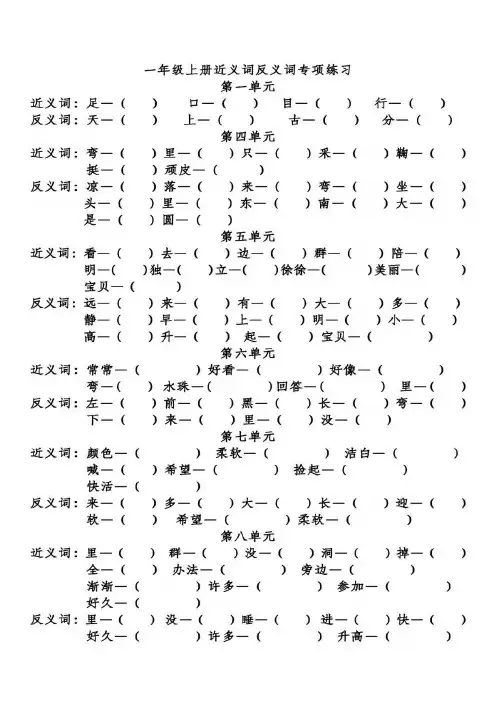 一年级上册近义词反义词专项练习
第一单元
近义词：足—（ ） 口—（ ） 目—（ ） 行—（ ）
反义词：天—（ ） 上—（ ） 古—（ ） 分—（ ）
第四单元
近义词：弯—（ ）里—（ ）只—（ ）采—（ ）鞠—（ ）
挺—（ ）顽皮—（ ）
反义词：凉—（ ）落—（ ）来—（ ）弯—（ ）坐—（ ）
头—（ ）里—（ ）东—（ ）南—（ ）大—（ ）
是—（ ）圆—（ ）
第五单元
近义词：看—（ ）去—（ ）边—（ ）群—（ ）陪—（ ）
明—( )独—( )立—( )徐徐—( )美丽—( )
宝贝—（ ）
反义词：远—（ ）来—（ ）有—（ ）大—（ ）多—（ ）
静—（ ）早—（ ）上—（ ）明—（ ）小—（ ）
高—（ ）升—（ ） 起—（ ）宝贝—（ ）
第六单元
近义词：常常—（ ）好看—（ ）好像—（ ）
弯—( ) 水珠—( )回答—( ) 里—( )
反义词：左—（ ）前—（ ）黑—（ ）长—（ ）弯—（ ）
下—（ ）来—（ ）里—（ ）没—（ ）
第七单元
近义词：颜色—（ ） 柔软—（ ） 洁白—（ ）
喊—（ ）希望—（ ） 捡起—（ ）
快活—（ ）
反义词：来—（ ）多—（ ）大—（ ）长—（ ）迎—（ ）
软—（ ） 希望—（ ）柔软—（ ）
第八单元
近义词：里—（ ） 群—（ ）没—（ ）洞—（ ）掉—（ ）
全—（ ） 办法—（ ） 旁边—（ ）
渐渐—（ ）许多—（ ） 参加—（ ）
好久—（ ）
反义词：里—（ ） 没—（ ）睡—（ ） 进—（ ）快—（ ）
好久—（ ）许多—（ ） 升高—（ ）